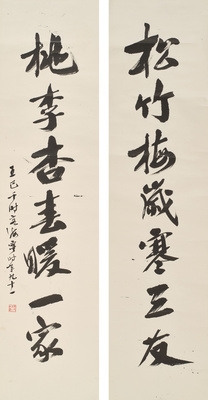 松竹梅歲寒三友
桃李杏春暖一家
時年九十一